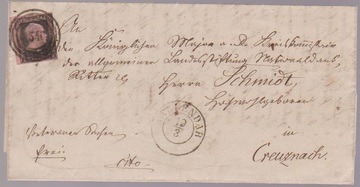 An
den Königlichen Major a. D. Kreiskommissar
der allgemeinen Landesstiftung Nationaldank,
Ritter pp
Herrn Schmidt,
Hochwohlgeboren
Veteranen Sachen
frei
cito
in
Creuznach.